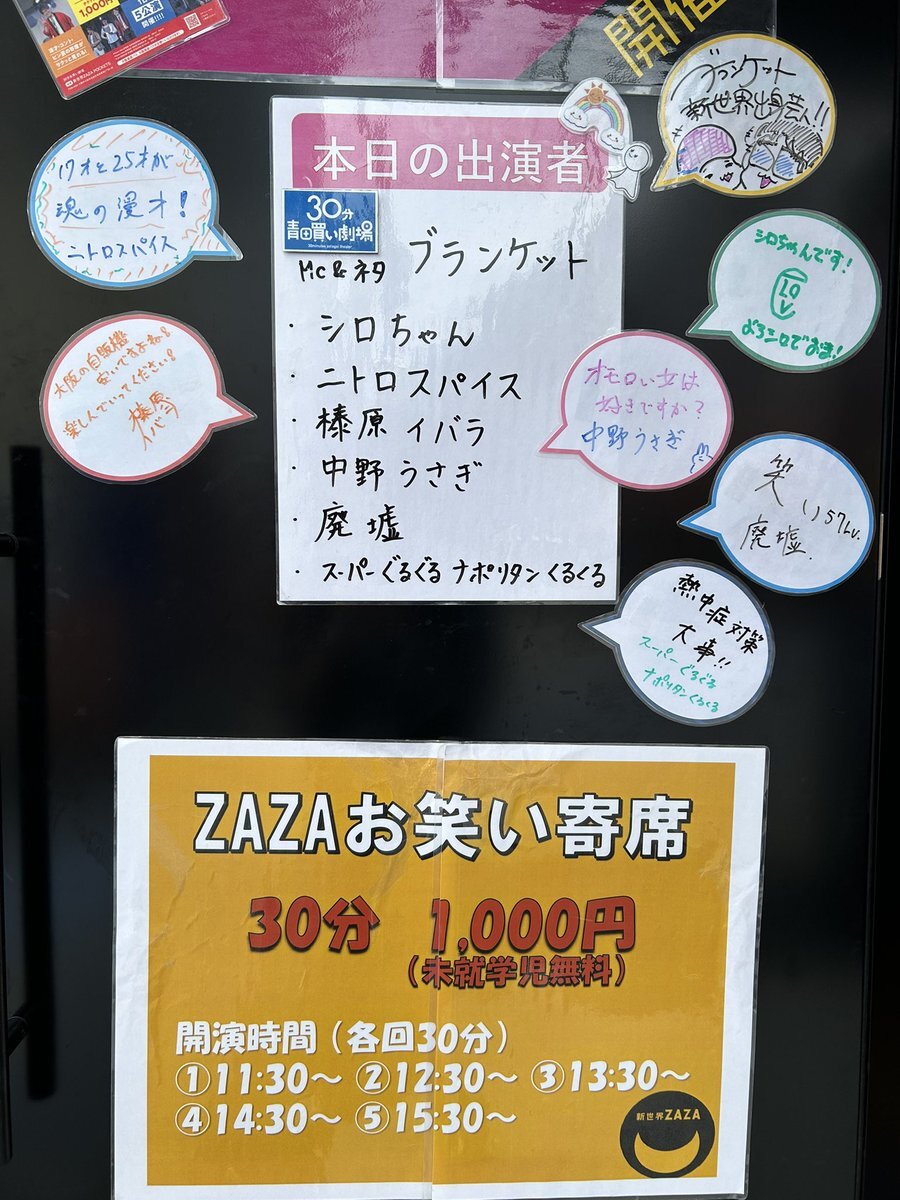 1,000円
5公演
開催!!!!
開催
ブランケット
新世界出身芸人!!
17才と25才が
魂の漫才!
ニトロスパイス
本日の出演者
30分
青田買い劇場
MC&ネタ ブランケット
・シロちゃん
・ニトロスパイス
・榛原イバラ
・中野うさぎ
・廃墟
・スーパーぐるぐるナポリタンくるくる
シロちゃんです!
よろシロでおま!
大阪の自販機
安いですよね!
楽しんでいってください!
榛原
イバラ
オモロい女は
好きですか?
中野うさぎ
笑い57Lv.
廃墟.
熱中症対策
大事!!
スーパーぐるぐる
ナポリタンくるくる
ZAZAお笑い寄席
30分 1,000円
(未就学児無料)
開演時間(各回30分)
①11:30〜 ②12:30〜 ③13:30〜
④14:30〜 ⑤15:30〜
新世界ZAZA